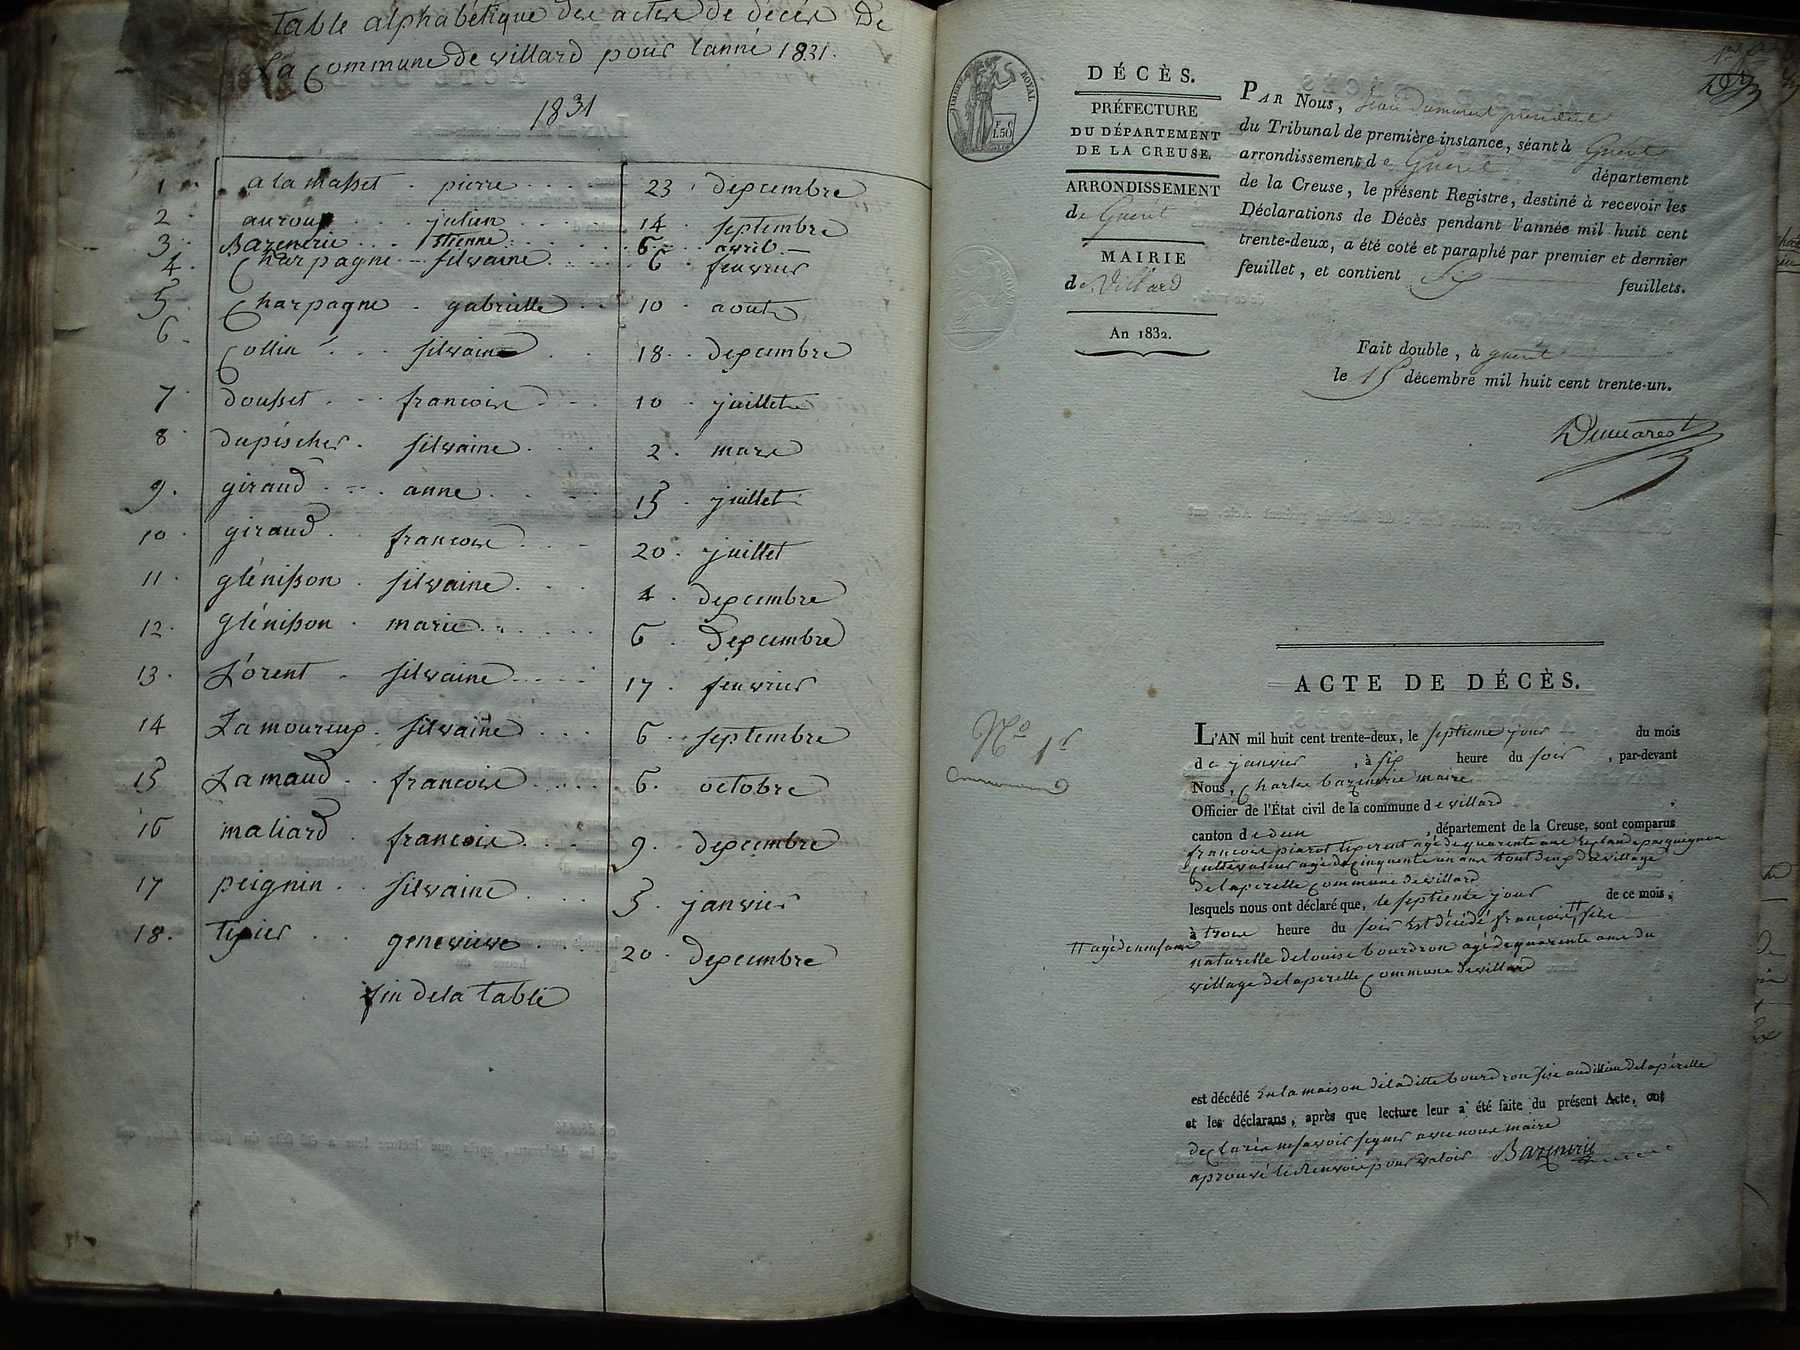 table alphabétique des actes de décés De
La Commune de villard pour lanné 1831.
1831
1 alamasset pierre 23 depcembre
2 auroux julien 14 septembre
3 Bazenerie etienne 6 avril
4 Charpagne silvaine 6 fevrier
5 Charpagne gabrielle 10 aout
6 Collin silvaine 18 depcembre
7 dousset francoise 10 juillet
8 dupischer silvaine 2 mars
9 giraud anne 15 juillet
10 giraud francoise 20 juillet
11 glénisson silvaine 4 depcembre
12 glénisson marie 6 Depcembre
13 Lorent silvaine 17 fevrier
14 Lamoureux silvaine 6 septembre
15 Lamaud francoise 6 octobre
16 maliard francoise 9 depcembre
17 peignin silvaine 5 janvier
18 tixier genevieve 20 depcembre
fin de la table
TIMBRE ROYAL
DÉCÈS.
PRÉFECTURE
DU DÉPARTEMENT
DE LA CREUSE.
ARRONDISSEMENT
de Guéret
MAIRIE
de Villard
An 1832.
PAR Nous, président
du Tribunal de première instance, séant à Gueret
arrondissement de Guéret département
de la Creuse, le présent Registre, destiné à recevoir les
Déclarations de Décès pendant l'année mil huit cent
trente-deux, a été coté et paraphé par premier et dernier
feuillet, et contient Six feuillets.
Fait double, à guéret
le 15 décembre mil huit cent trente-un.
ACTE DE DÉCÈS.
No 1er
L'AN mil huit cent trente-deux, le septieme jour du mois
de janvier, à six heure du soir, par-devant
Nous, Charles bazenerie maire
Officier de l'État civil de la commune de villard
canton de dun, département de la Creuse, sont comparus
francois agé de quarente ans
Cultivateur agé de Cinquente un ans tout deux du village
de laperelle Commune de villard
lesquels nous ont déclaré que, le septieme jour de ce mois,
à trois heure du soir Est décédé francois fils
agé de neuf ans
naturelle de louise bourdron agé de quarente ans du
village de laperelle Commune de villard
est décédé En la maison de la ditte bourdron sise audit lieu de laperelle
et les déclarans, après que lecture leur a été faite du présent Acte, ont
declarés ne savoir signer avec nous maire
aprouvé le Renvois pour valoir Bazenerie